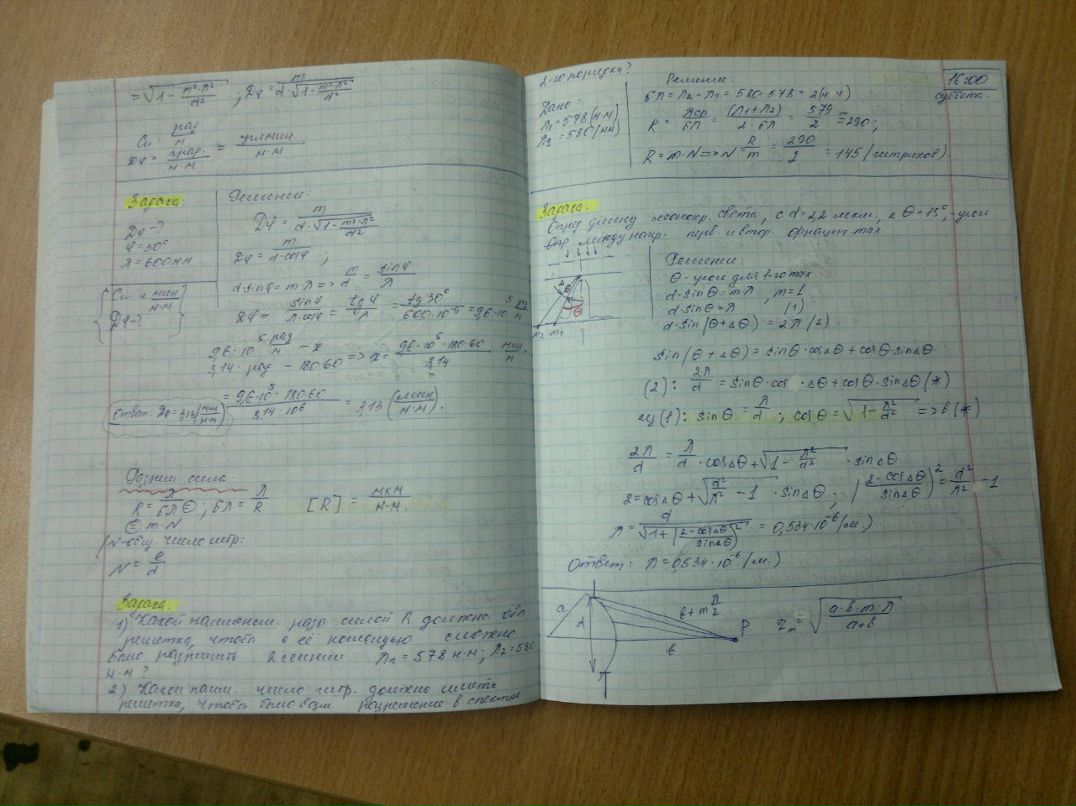 = √(1 - m²·λ²/d²) ; Dφ = m/(d·√(1 - m²·λ²/d²))
Си: рад/м
Dφ = град./н·м = угл.мин./н·м
Задача:
Dφ-?
φ=30°
λ=600нм
Си и мин/н·м.
Dφ-?
Решение:
Dφ = m/(d·√(1 - m²·λ²/d²))
Dφ = m/(d·cosφ) ;
d·sinφ = m·λ => m/d = sinφ/λ
Dφ = sinφ/(λ·cosφ) = tgφ/λ = tg30°/(600·10⁻⁹) = 9,6·10⁵ рад/м
9,6·10⁵ рад/м - x
3,14·рад - 180·60 => x = 9,6·10⁵·180·60/3,14 мин/м =
= 9,6·10⁵·180·60/(3,14·10⁶) = 3,13 (мин/н·м).
Ответ: Dφ=3,13 (мин/н·м)
R = λ/δλ ; δλ = λ/R [R] = мкм/н·м.
= m·N
N-общ. число штр:
N = e/d
Задача.
1) Какой наименьш. разр силой R должна обл
решетка, чтобы с её помощью можно
было разрешить 2 линии λ₁=578 н·м; λ₂=580
н·м?
2) Какое наим. число штр. должна иметь
решетка, чтобы было разрешение в спектре
2-го порядка?
16:00
суббота.
Дано:
λ₁=578(н·м)
λ₂=580(нм)
Решение:
δλ = λ₂-λ₁ = 580-578 = 2(н·м)
R = λср/δλ = (λ₁+λ₂)/(2·δλ) = 579/2 = 290;
R = m·N => N = R/m = 290/2 = 145 (штрихов)
Задача.
Опред длину монохр. света, с d=2,2 мкм, а θ=15°, угол
между напр. перв. и втор.
Решение:
θ - угол для 1-го max
d·sinθ = m·λ , m=1
d·sinθ = λ (1)
d·sin(θ+Δθ) = 2λ (2)
Δθ
θ
m₂ m₁
sin(θ+Δθ) = sinθ·cosΔθ + cosθ·sinΔθ
(2): 2λ/d = sinθ·cosΔθ + cosθ·sinΔθ (*)
из(1): sinθ = λ/d ; cosθ = √(1 - λ²/d²) => в(*)
2λ/d = λ/d·cosΔθ + √(1 - λ²/d²)·sinΔθ
2 = cosΔθ + √(d²/λ² - 1)·sinΔθ ; ((2-cosΔθ)/sinΔθ)² = d²/λ² - 1
λ = d/√(1+((2-cosΔθ)/sinΔθ)²) = 0,534·10⁻⁶ (м.)
Ответ: λ = 0,534·10⁻⁶ (м.)
a
d
b+m λ/2
b
P
r_m = √(a·b·m·λ/(a+b))